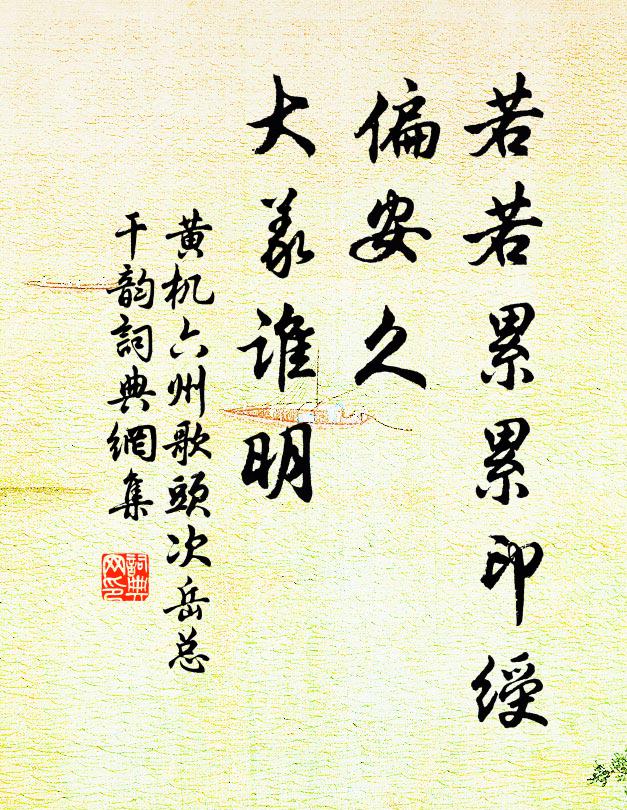 若若累累印綬
偏安久
大義谁明
黄机六州歌頭次岳总
干韵詞典網集
詞典
网印